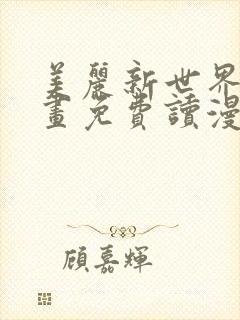 美麗新世界
畫免費讀漫
顧嘉輝